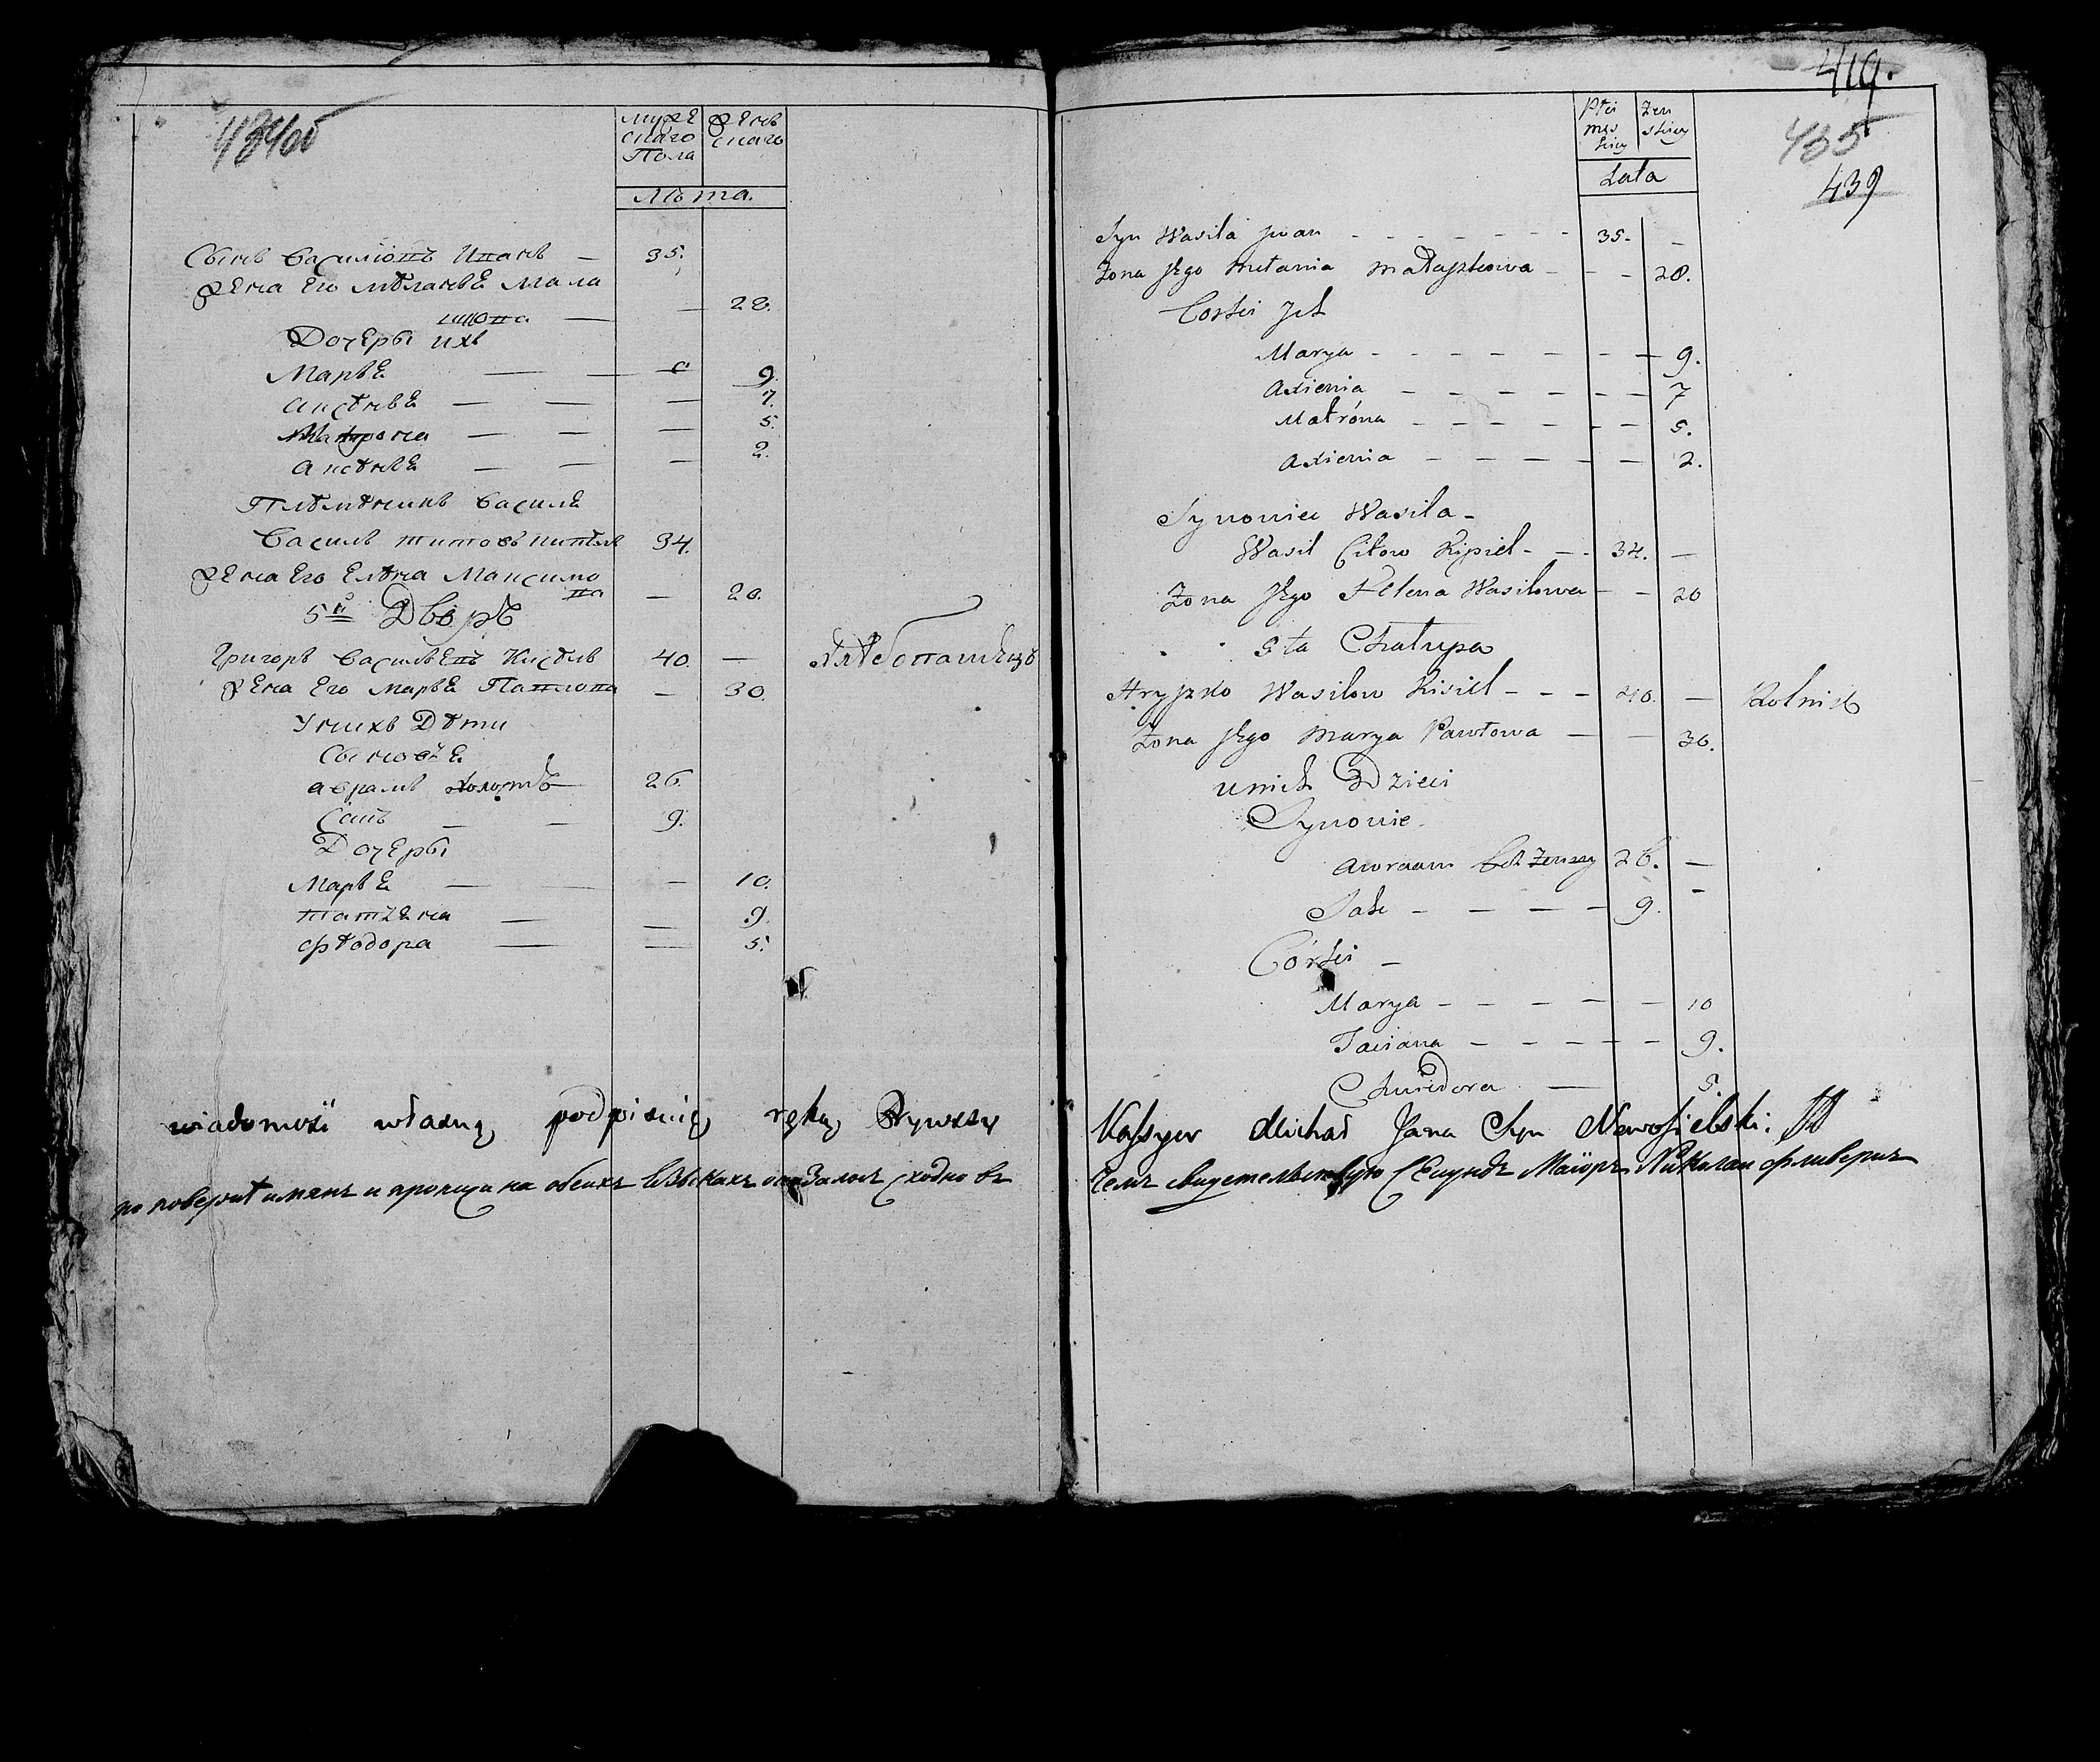 434об
муже
скаго
Пола
женс
скаго
Лѣта.
Сынъ Василіовъ Иванъ — 35.
Жена Его мѣланья Мала
шкова — — 28.
Дочеры ихъ
Марья — — 9.
аксѣнья — — — 7.
Матрона — — — 5.
аксѣнья — — — 2.
Плѣмѣникъ Василя
Василь титовъ 34.
Жена Его Елѣна Максимо
ва — 20.
5й Дворъ
Григоръ Васильевъ Кисѣль 40. — хлѣбопашецъ
Жена Его Марья Павлова — 30.
У нихъ Дѣти
Сыновья
аврамъ холостъ — 26.
Сакъ — — 9.
Дочеры
Марья — — — 10.
татяена — — 9.
фѣодора — — 5.
wiadomość własną podpisuię ręką Bywszy
по поверке имянъ и прописи на обеихъ языкахъ оказалось сходно въ
419.
435
439
Płci
męs
kiey
żen
skiey
Lata
Syn Wasila jwan - - - - - - - 35. -
Żona Jego Mełania Małaszkowa - - - 28.
Corki Jch
Marya - - - - - - - - 9.
Axienia - - - - - - - 7
Matróna - - - - - - - 5.
Axienia - - - - - - - 2.
Synowiec Wasila -
Wasil Citow Kisiel - - - 34. -
Żona Jego Helena Wasilowa - - 20
5ta Chałupa
Hryszko Wasilow Kisiel - - - 40. - Rolnik
Żona Jego Marya Pawłowa - - 30.
u nich Dzieci
Synowie.
Awraam bez żenny 26. -
Sak - - - - - 9. -
Córki -
Marya - - - - - - 10
Taciana - - - - - - 9.
Chwiedora - 5.
Kassyer Michał Jana Syn Nowosielski.
чемъ свидетельствую Секундъ Маіоръ Николаи фливеркъ